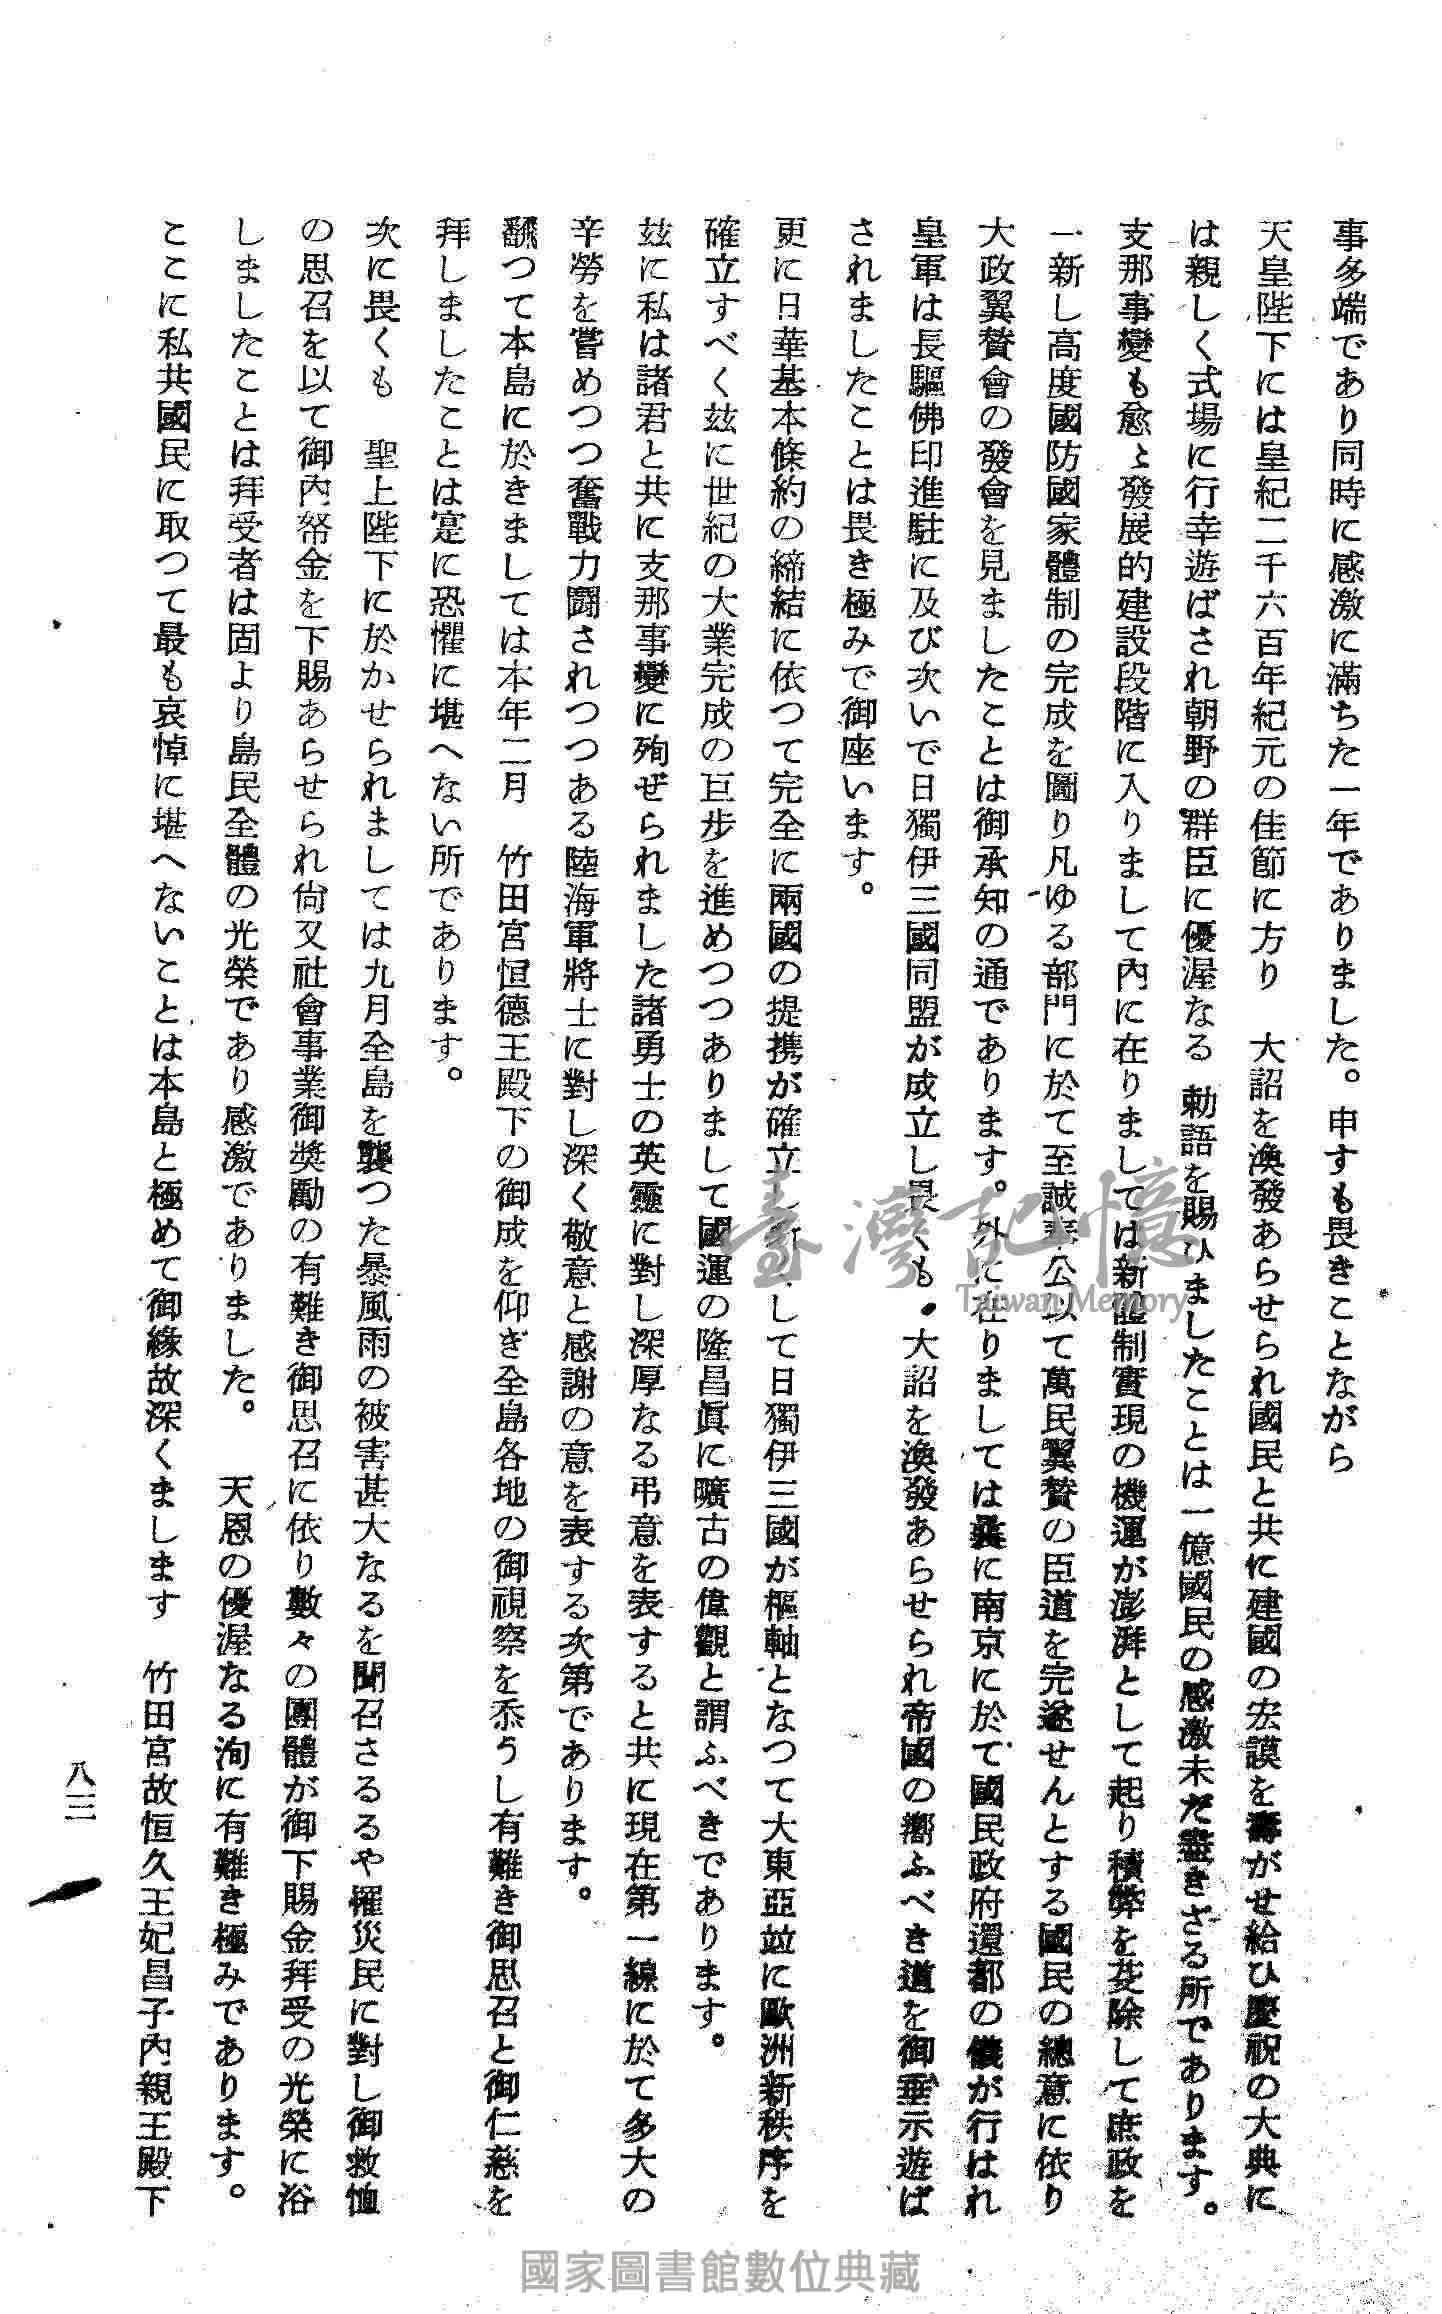 事多端であり同時に感激に滿ちた一年でありました。申すも畏きことながら
天皇陛下には皇紀二千六百年紀元の佳節に方り　大詔を渙發あらせられ國民と共に建國の宏謨を壽がせ給ひ慶祝の大典に
は親しく式場に行幸遊ばされ朝野の群臣に優渥なる　勅語を賜ひましたことは一億國民の感激未だ盡きざる所であります。
支那事變も愈〻發展的建設段階に入りまして內に在りましては新體制實現の機運が澎湃として起り積弊を芟除して庶政を
一新し高度國防國家體制の完成を圖り凡ゆる部門に於て至誠奉公以て萬民翼贊の臣道を完遂せんとする國民の總意に依り
大政翼贊會の發會を見ましたことは御承知の通であります。外に在りましては曩に南京に於て國民政府還都の儀が行はれ
皇軍は長驅佛印進駐に及び次いで日獨伊三國同盟が成立し畏くも　大詔を渙發あらせられ帝國の嚮ふべき道を御垂示遊ば
されましたことは畏き極みで御座います。
更に日華基本條約の締結に依つて完全に兩國の提携が確立し　して日獨伊三國が樞軸となつて大東亞竝に歐洲新秩序を
確立すべく玆に世紀の大業完成の巨步を進めつつありまして國運の隆昌眞に曠古の偉觀と謂ふべきであります。
玆に私は諸君と共に支那事變に殉ぜられました諸勇士の英靈に對し深厚なる弔意を表すると共に現在第一線に於て多大の
辛勞を嘗めつつ奮戰力鬪されつつある陸海軍將士に對し深く敬意と感謝の意を表する次第であります。
飜つて本島に於きましては本年二月　竹田宮恒德王殿下の御成を仰ぎ全島各地の御視察を忝うし有難き御思召と御仁慈を
拜しましたことは寔に恐懼に堪へない所であります。
次に畏くも　聖上陛下に於かせられましては九月全島を襲つた暴風雨の被害甚大なるを聞召さるるや罹災民に對し御救恤
の思召を以て御內帑金を下賜あらせられ尙又社會事業御奬勵の有難き御思召に依り數々の團體が御下賜金拜受の光榮に浴
しましたことは拜受者は固より島民全體の光榮であり感激でありました。　天恩の優渥なる洵に有難き極みであります。
ここに私共國民に取つて最も哀悼に堪へないことは本島と極めて御緣故深くまします　竹田宮故恒久王妃昌子內親王殿下
八三
臺灣記憶
Taiwan Memory
國家圖書館數位典藏